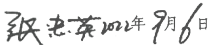 张志英2022年9月6日